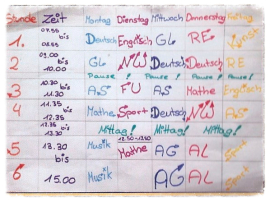 Stunde Zeit Montag Dienstag Mittwoch Donnerstag Freitag
1. 07.55 bis 08.55 Deutsch Englisch GL RE Kunst
2 09.00 bis 10.00 GL NW Deutsch Deutsch RE
Pause! Pause! Pause!
3 10.30 bis 11.30 AS FU AS Mathe Englisch
4 11.35 bis 12.35 Mathe Sport Deutsch NW AS
12.35 bis 13.30 Mittag! Mittag! Mittag!
12.50-13.50
5 13.30 bis Musik Mathe AG AL Sport
6 15.00 Musik AG AL Sport